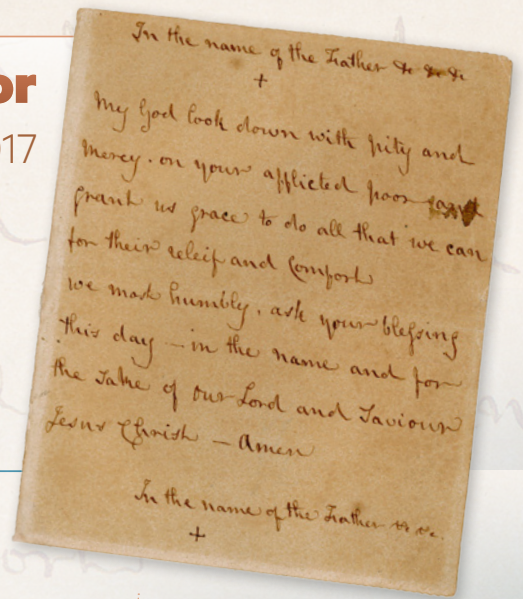 or
017
In the name of the Father &c &c &c
+
My God look down with pity and
mercy. on your afflicted poor and
grant us grace to do all that we can
for their releif and Comfort
we most humbly, ask your blessing
this day — in the name and for
the Sake of our Lord and Saviour
Jesus Christ — Amen
In the name of the Father &c &c.
+